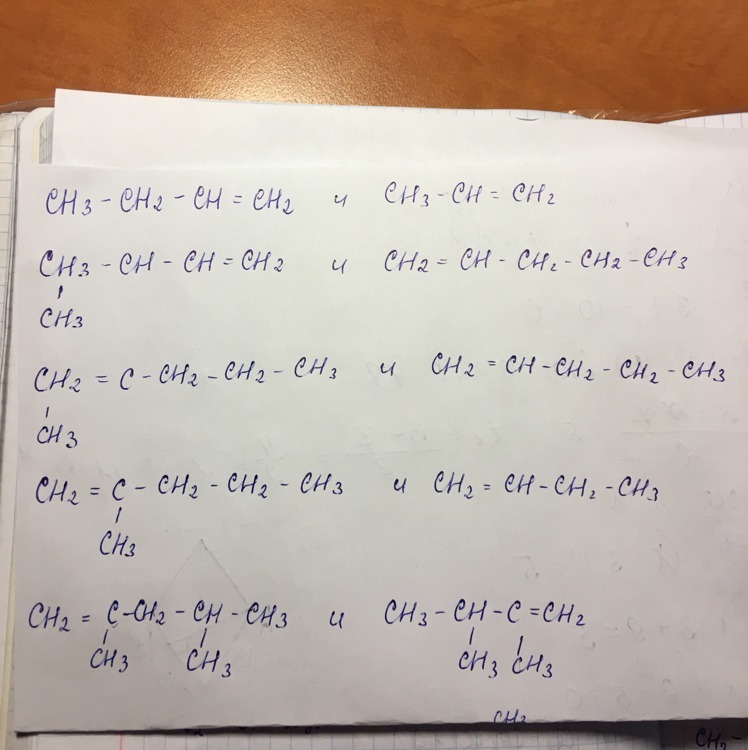 CH3 - CH2 - CH = CH2 и CH3 - CH = CH2
CH3 - CH - CH = CH2 и CH2 = CH - CH2 - CH2 - CH3
CH3
CH2 = C - CH2 - CH2 - CH3 и CH2 = CH - CH2 - CH2 - CH3
CH3
CH2 = C - CH2 - CH2 - CH3 и CH2 = CH - CH2 - CH3
CH3
CH2 = C - CH2 - CH - CH3 и CH3 - CH - C = CH2
CH3 CH3 CH3 CH3